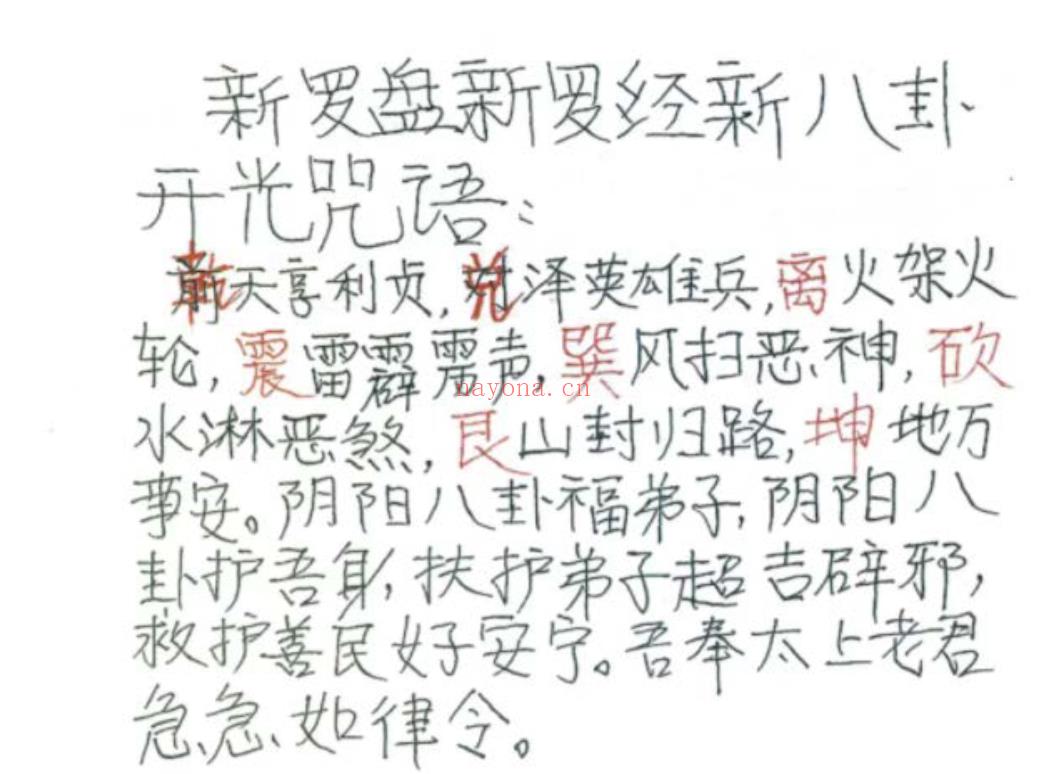 新罗盘新罗经新八卦
开光咒语:
乾天亨利贞,兑泽英雄兵,离火架火
轮,震雷霹雳声,巽风扫恶神,砍
水淋恶煞,艮山封归路,坤地万
事安。阴阳八卦福弟子,阴阳八
卦护吾身,扶护弟子超吉辟邪,
救护善民好安宁。吾奉太上老君
急急如律令。
nayona.cn